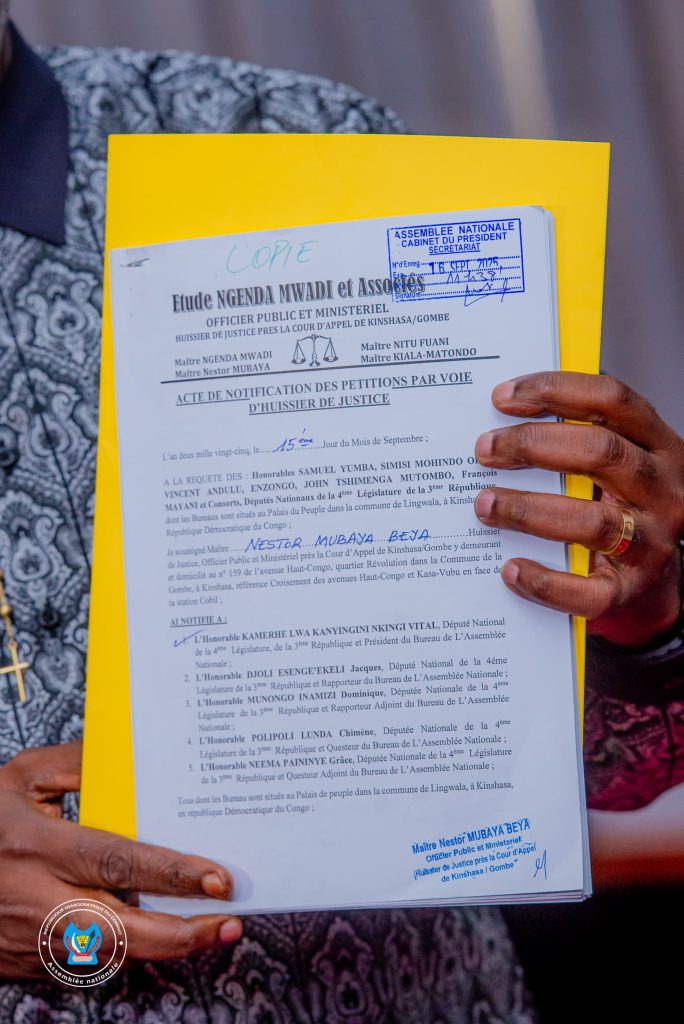 COPIE
ASSEMBLEE NATIONALE
CABINET DU PRESIDENT
SECRETARIAT
N°d'Enreg
16 SEPT 2025
11h38
Signature
Etude NGENDA MWADI et Associés
OFFICIER PUBLIC ET MINISTERIEL
HUISSIER DE JUSTICE PRES LA COUR D'APPEL DE KINSHASA/GOMBE
Maître NGENDA MWADI
Maître Nestor MUBAYA
Maître NITU FUANI
Maître KIALA-MATONDO
ACTE DE NOTIFICATION DES PETITIONS PAR VOIE
D'HUISSIER DE JUSTICE
L'an deux mille vingt-cinq, le 15ème Jour du Mois de Septembre ;
A LA REQUETE DES : Honorables SAMUEL YUMBA, SIMISI MOHINDO
VINCENT ANDULU, ENZONGO, JOHN TSHIMENGA MUTOMBO, François
MAYANI et Consorts, Députés Nationaux de la 4ème Législature de la 3ème République
dont les Bureaux sont situés au Palais du Peuple dans la commune de Lingwala, à Kinshasa
République Démocratique du Congo ;
Je soussigné Maître NESTOR MUBAYA BEYA Huissier
de Justice, Officier Public et Ministériel près la Cour d'Appel de Kinshasa/Gombe y demeurant
et domicilié au n° 159 de l'avenue Haut-Congo, quartier Révolution dans la Commune de la
Gombe, à Kinshasa, référence Croisement des avenues Haut-Congo et Kasa-Vubu en face de
la station Cobil ;
AI NOTIFIE A :
1. L'Honorable KAMERHE LWA KANYINGINI NKINGI VITAL, Député National
de la 4ème Législature, de la 3ème République et Président du Bureau de L'Assemblée
Nationale ;
2. L'Honorable DJOLI ESENGE'EKELI Jacques, Député National de la 4éme
Législature de la 3ème République et Rapporteur du Bureau de L'Assemblée Nationale ;
3. L'Honorable MUNONGO INAMIZI Dominique, Députée Nationale de la 4ème
Législature de la 3ème République et Rapporteur Adjoint du Bureau de L'Assemblée
Nationale ;
4. L'Honorable POLIPOLI LUNDA Chimène, Députée Nationale de la 4ème
Législature de la 3ème République et Questeur du Bureau de L'Assemblée Nationale ;
5. L'Honorable NEEMA PAININYE Grâce, Députée Nationale de la 4ème Législature
de la 3ème République et Questeur Adjoint du Bureau de L'Assemblée Nationale ;
Tous dont les Bureau sont situés au Palais de peuple dans la commune de Lingwala, à Kinshasa,
en république Démocratique du Congo ;
Maître Nestor MUBAYA BEYA
Officier Public et Ministériel
(Huissier de Justice près la Cour d'Appel
de Kinshasa / Gombe
REPUBLIQUE DEMOCRATIQUE DU CONGO
Assemblée nationale